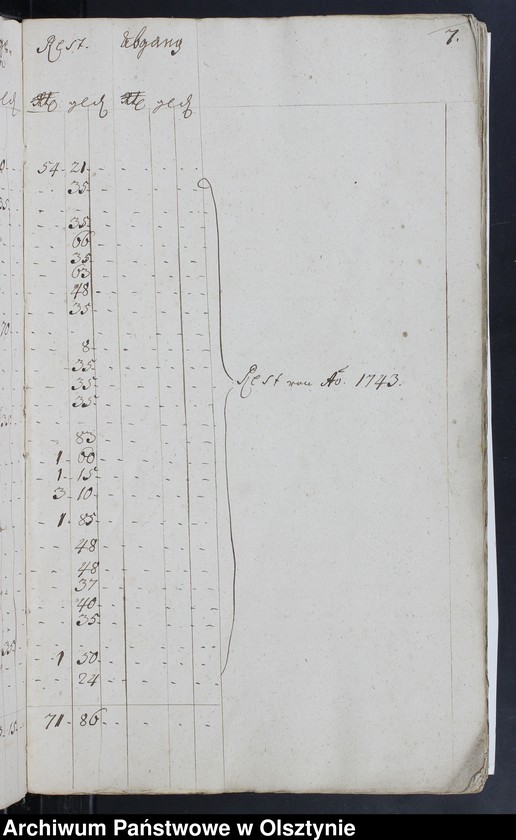 7.
Rest. Abgang
54 - 21 -
35 -
35 -
66 -
35 -
63 -
48 -
35 -
8 -
35 -
35 -
35 -
83 -
1 - 60 -
1 - 15 -
3 - 10 -
1 - 85 -
48 -
48 -
37 -
40 -
35 -
1 50 -
24 -
Rest von Ao. 1743.
71 - 86 -
Archiwum Państwowe w Olsztynie